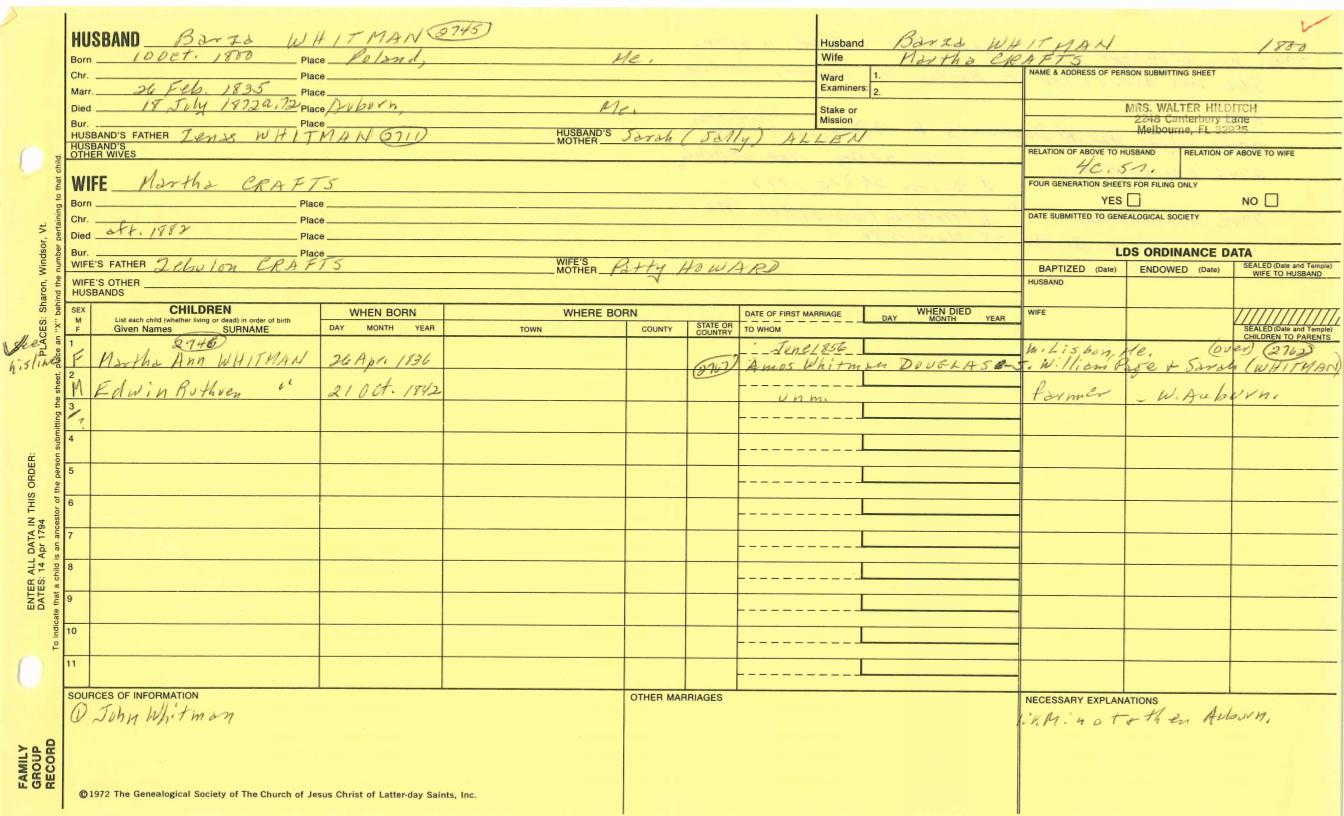 HUSBAND Barza WHITMAN 2745
Born 10 Oct. 1800 Place Poland, Me.
Chr. Place
Marr. 26 Feb. 1835 Place
Died 18 July 1872 a. 72 Place Auburn, Me.
Bur. Place
HUSBAND'S FATHER Zenas WHITMAN 2711 HUSBAND'S MOTHER Sarah (Sally) ALLEN
HUSBAND'S OTHER WIVES
WIFE Martha CRAFTS
Born Place
Chr. Place
Died aft. 1882 Place
Bur. Place
WIFE'S FATHER Zebulon CRAFTS WIFE'S MOTHER Patty HOWARD
WIFE'S OTHER HUSBANDS
Husband Barza WHITMAN 1800
Wife Martha CRAFTS
Ward Examiners: 1. 2.
Stake or Mission
NAME & ADDRESS OF PERSON SUBMITTING SHEET
MRS. WALTER HILDITCH
2248 Canterbury Lane
Melbourne, FL 32935
RELATION OF ABOVE TO HUSBAND RELATION OF ABOVE TO WIFE
4c. 5r.
FOUR GENERATION SHEETS FOR FILING ONLY
YES NO
DATE SUBMITTED TO GENEALOGICAL SOCIETY
LDS ORDINANCE DATA
BAPTIZED (Date) ENDOWED (Date) SEALED (Date and Temple) WIFE TO HUSBAND
HUSBAND
WIFE
SEALED (Date and Temple) CHILDREN TO PARENTS
SEX M F
CHILDREN
List each child (whether living or dead) in order of birth
Given Names SURNAME
WHEN BORN
DAY MONTH YEAR
WHERE BORN
TOWN COUNTY STATE OR COUNTRY
DATE OF FIRST MARRIAGE
TO WHOM
WHEN DIED
DAY MONTH YEAR
see his line
1 2746 June 1856 m. Lisbon, Me. (over) 2762
F Martha Ann WHITMAN 26 Apr. 1836 2762 Amos Whitman DOUGLAS s. William Page & Sarah (WHITMAN)
2
M Edwin Ruthven " 21 Oct. 1842 unm. Farmer - W. Auburn.
3
4
5
6
7
8
9
10
11
SOURCES OF INFORMATION
① John Whitman
OTHER MARRIAGES
NECESSARY EXPLANATIONS
liv. Minot & then Auburn.
©1972 The Genealogical Society of The Church of Jesus Christ of Latter-day Saints, Inc.
FAMILY GROUP RECORD
ENTER ALL DATA IN THIS ORDER:
DATES: 14 Apr 1794
PLACES: Sharon, Windsor, Vt.
To indicate that a child is an ancestor of the person submitting the sheet, place an "X" behind the number pertaining to that child.